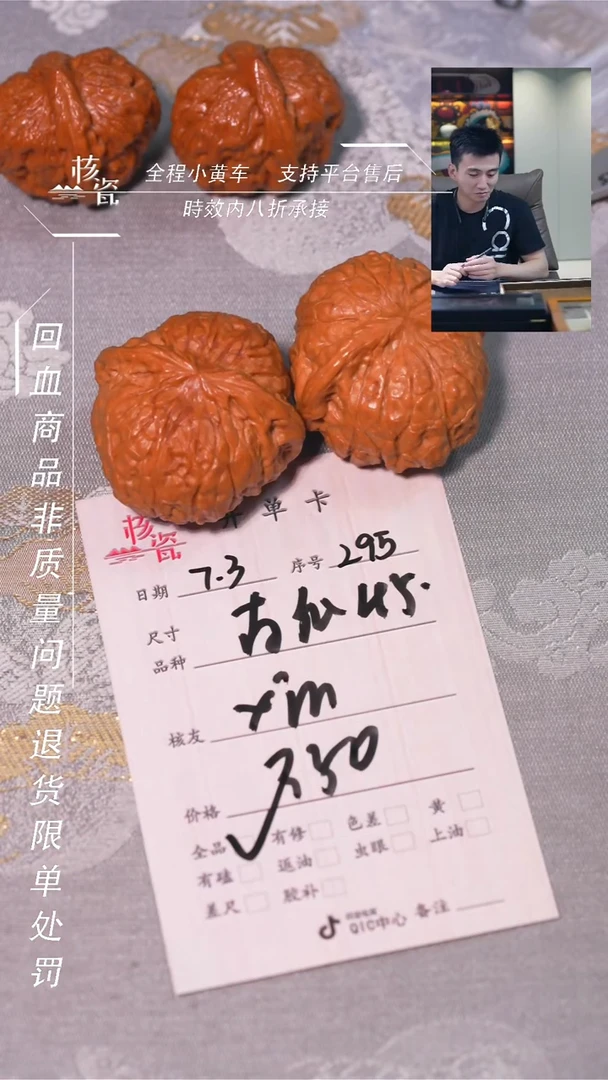 核瓷
全程小黄车 支持平台售后
時效内八折承接
回血商品非质量问题退货限单处罚
核瓷 开单卡
日期 7.3 序号 295
尺寸
品种 45.
核友 xm
价格 350
全品 ✓ 有修 色差 黄
有磕 返油 虫眼 上油
差尺 胶补
QIC中心 备注